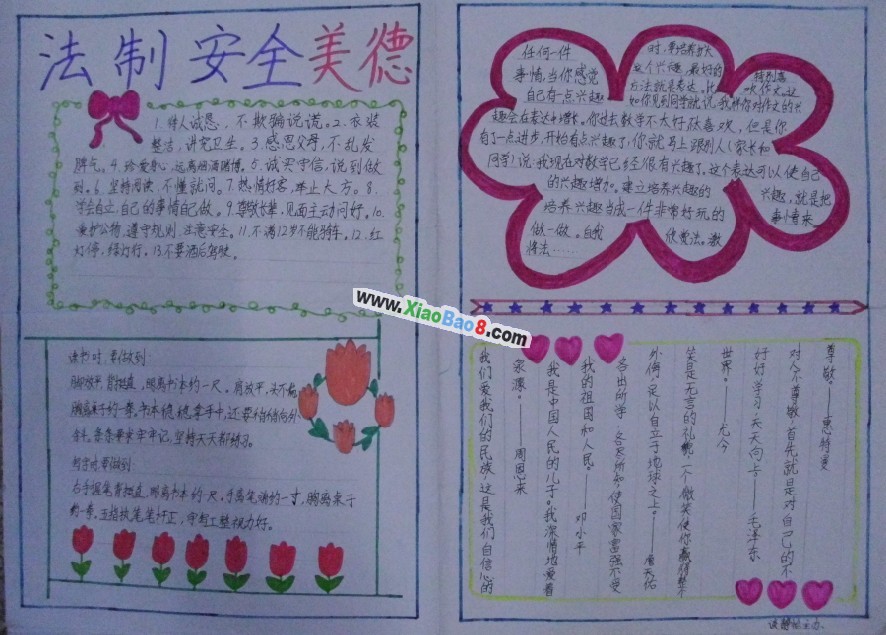 法制安全美德
1.待人诚恳，不欺骗说谎。2.衣装
整洁，讲究卫生。3.感恩父母，不乱发
脾气。4.珍爱身心，远离烟酒赌博。5.诚实守信，说到做
到。6.坚持阅读，不懂就问。7.热情好客，举止大方。8.
学会自立，自己的事情自己做。9.尊敬长辈，见面主动问好。10.
爱护公物，遵守规则，注意安全。11.不满12岁不能骑车。12.红
灯停，绿灯行，13.不要酒后驾驶。
读书时，要做到：
胸离桌子约一拳，书本稳稳拿手中，还要稍稍向外
条条要求牢牢记，坚持天天都练习。
写字时，要做到：
右手握笔背挺直，眼离书本约一尺，手离笔端约一寸，胸离桌子
约一拳，五指执笔笔杆正，守好工整视力好。
任何一件
事情，当你感觉
自己有点兴趣
时，要培养扩大
这个兴趣，最好的
方法就是表达。比
如你见到同学就说，我
特别喜
欢作文，这
样你对作文的兴
趣会在表达中增长。你过去数学不大好不太喜欢，但是你
有了一点进步，开始有点兴趣了，你就马上跟别人（家长和
同学）说：我现在对数学已经很有兴趣了。这个表达可以使自己
的兴趣增加。建立培养兴趣的
兴趣，就是把
培养兴趣当成一件非常好玩的
事情来
做一做。自我
欣赏法。激
将法……
www.XiaoBao8.com
尊敬。——惠特曼
对人不尊敬，首先就是对自己的不
好好学习，天天向上。——毛泽东
世界。——尤今
笑是无言的礼貌，一个微笑使你赢得整个
外侮，足以自立于地球之上。——詹天佑
各出所学，各尽所知，使国家富强不受
我的祖国和人民。——邓小平
我是中国人民的儿子。我深情地爱着
泉源。——周恩来
我们爱我们的民族，这是我们自信心的
主办